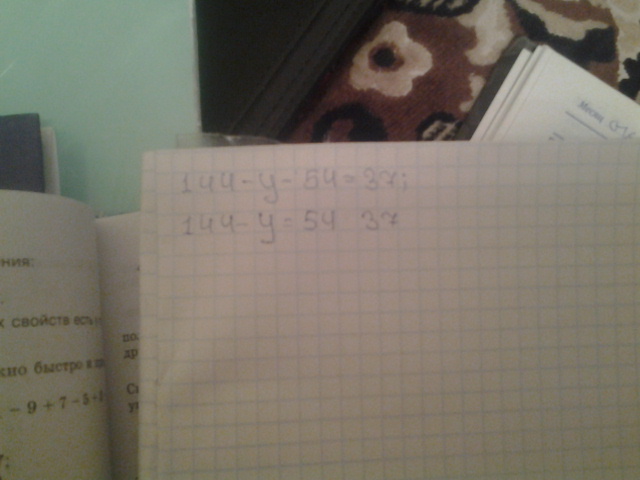 144-y-54=37;
144-y=54 37
ния:
х свойств есть
жно быстро
- 9 + 7 - 5 -
по
др
Сл
7;